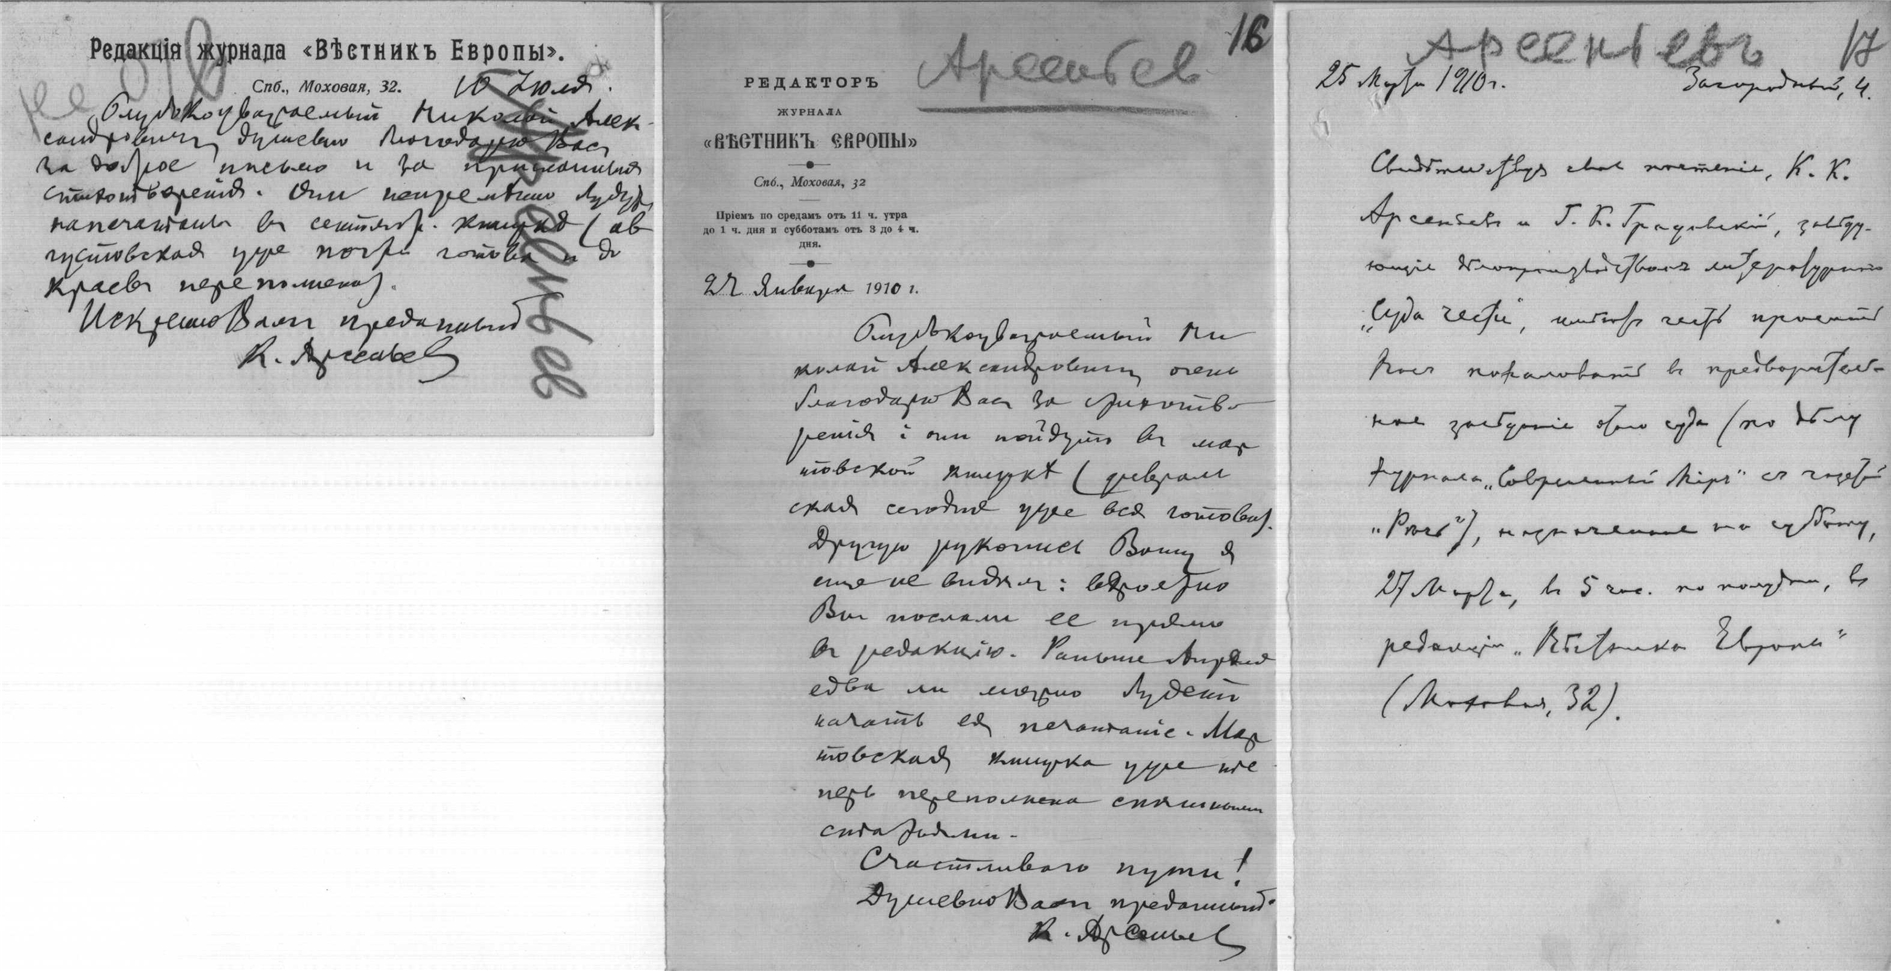 Редакція журнала «Вѣстникъ Европы».
Спб., Моховая, 32. 10 Июля.
Глубокоуважаемый Николай Алек-
сандровичъ, душевно благодарю Васъ
за доброе письмо и за присланныя
стихотворенія. Они непремѣнно будутъ
напечатаны въ сентябр. книжкѣ (ав
густовская уже почти готова и до
краевъ переполнена).
Искренно Вамъ преданный
К. Арсеньев
Арсеньев
Арсеньев
16
РЕДАКТОРЪ
ЖУРНАЛА
«ВѢСТНИКЪ ЕВРОПЫ»
Спб., Моховая, 32
Пріемъ по средамъ отъ 11 ч. утра
до 1 ч. дня и субботамъ отъ 3 до 4 ч.
дня.
27 Января 1910 г.
Глубокоуважаемый Ни
колай Александровичъ, очень
благодарю Васъ за стихотво
ренія; они пойдутъ въ мар
товской книжкѣ (февраль
ская сегодня уже вся готова).
Другую рукопись Вашу я
еще не видѣлъ: вѣроятно
Вы послали ее прямо
въ редакцію. Раньше Апрѣля
едва ли можно будетъ
начать ея печатаніе. Мар
товская книжка уже те
перь переполнена спѣшными
статьями.
Счастливаго пути!
Душевно Вамъ преданный
К. Арсеньев
Арсеньевъ
17
25 Марта 1910 г. Загородный, 4.
Свидѣтельствуя свое почтеніе, К. К.
Арсеньевъ и Г. К. Градовскій, завѣду-
ющіе дѣлопроизводствомъ литературнаго
„Суда чести“, имѣютъ честь просить
Васъ пожаловать въ предваритель-
ное засѣданіе этого суда (по дѣлу
журнала „Современный Міръ“ съ газетой
„Рѣчь“), назначенное на субботу,
27 Марта, въ 5 час. по полудни, въ
редакціи „Вѣстника Европы“
(Моховая, 32).